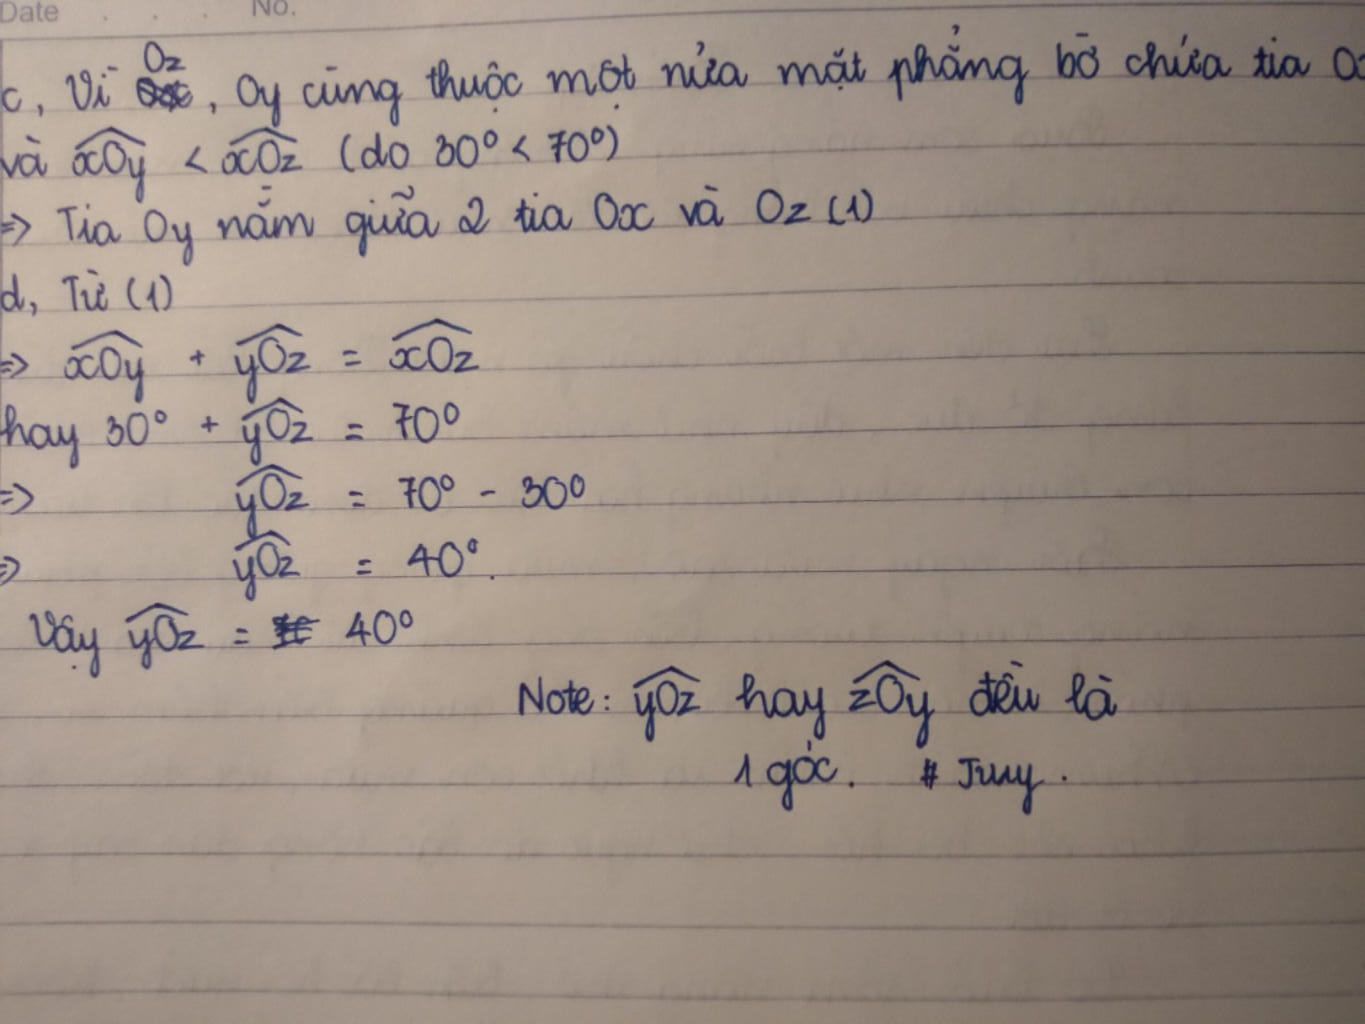 Date . . . No.
c, Vì Oz, Oy cùng thuộc một nửa mặt phẳng bờ chứa tia
và xOy < xOz (do 30° < 70°)
=> Tia Oy nằm giữa 2 tia Ox và Oz (1)
d, Từ (1)
=> xOy + yOz = xOz
hay 30° + yOz = 70°
=> yOz = 70° - 30°
=> yOz = 40°.
Vậy yOz = 40°
Note: yOz hay zOy đều là
1 góc. # Juuy.